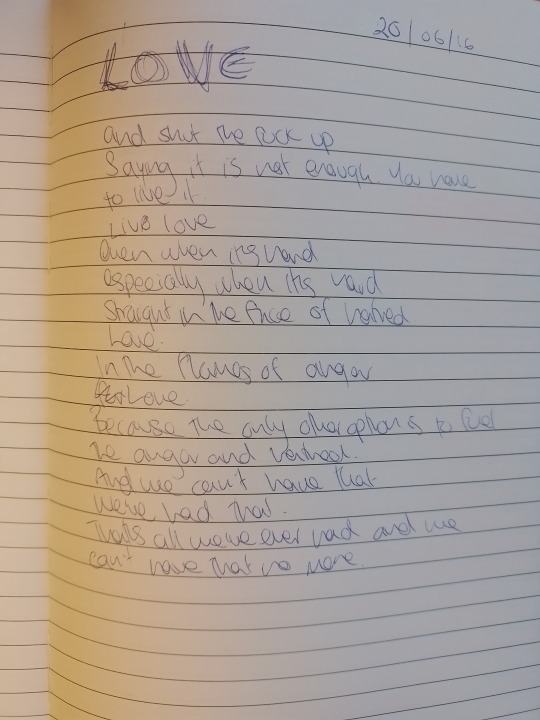 20/06/16
LOVE
and shut the fuck up
Saying it is not enough. You have
to live it.
Live love
Even when its hard
especially when its hard
Straight in the face of hatred
Love.
In the flames of anger
Love.
Because the only other option is to fuel
the anger and hatred.
And we can't have that.
We've had that.
That's all we've ever had and we
can't have that no more.